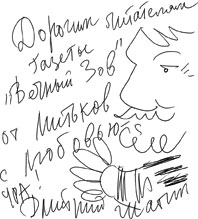 Дорогим читателям
газеты
"Вечный Зов"
от Митьков
с любовью
Дмитрий Шагин